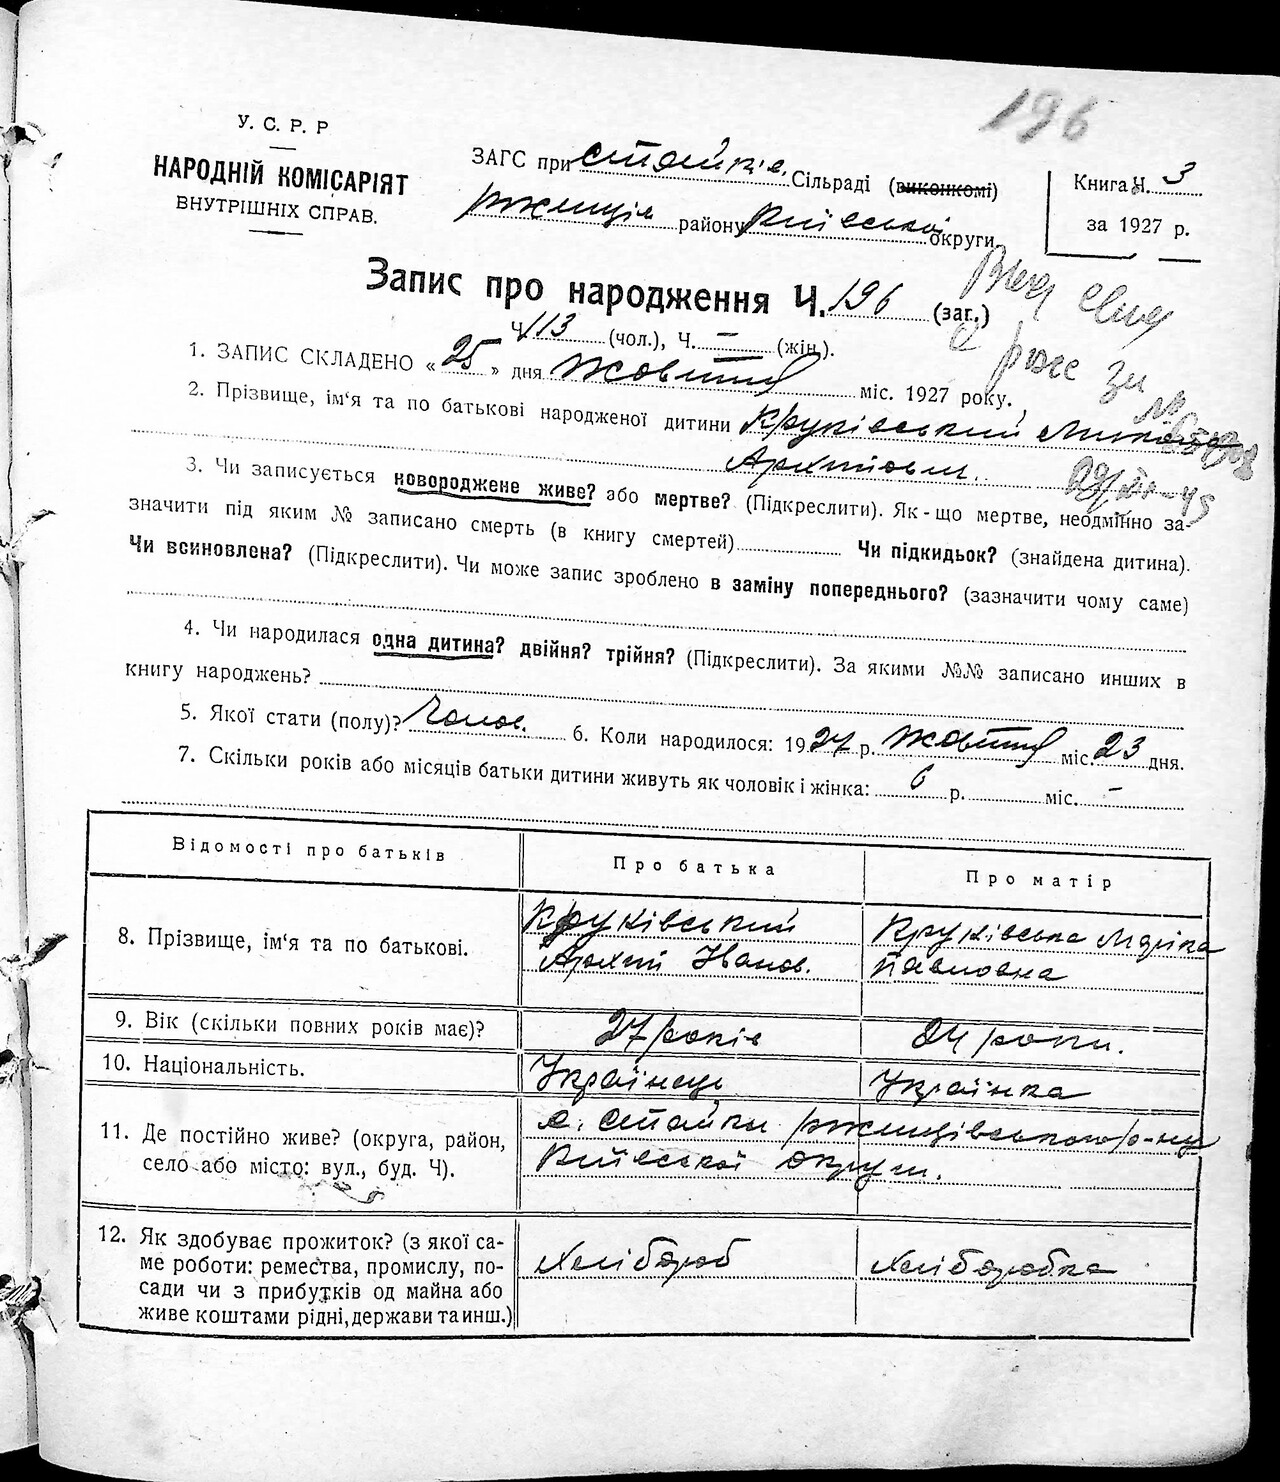 196
У. С. Р. Р
НАРОДНІЙ КОМІСАРІЯТ
ВНУТРІШНІХ СПРАВ.
ЗАГС при Стайків. Сільраді (виконкомі)
Ржищів. району Київської округи
Книга Ч. 3
за 1927 р.
Запис про народження Ч. 196 (заг.)
Ч 113 (чол.), Ч. – (жін.).
1. ЗАПИС СКЛАДЕНО « 25 » дня Жовтня міс. 1927 року.
2. Прізвище, ім'я та по батькові народженої дитини Круківський Микола
Архипович.
3. Чи записується новороджене живе? або мертве? (Підкреслити). Як-що мертве, неодмінно за-
значити під яким № записано смерть (в книгу смертей) Чи підкидьок? (знайдена дитина).
Чи всиновлена? (Підкреслити). Чи може запис зроблено в заміну попереднього? (зазначити чому саме)
4. Чи народилася одна дитина? двійня? трійня? (Підкреслити). За якими №№ записано инших в
книгу народжень?
5. Якої стати (полу)? Чолов. 6. Коли народилося: 1927 р. Жовтня міс. 23 дня.
7. Скільки років або місяців батьки дитини живуть як чоловік і жінка: 6 р. міс. –
Відомості про батьків
Про батька
Про матір
8. Прізвище, ім'я та по батькові.
Круківський
Архип Іванов.
Круківська Марія
Павловна
9. Вік (скільки повних років має)?
27 років
24 роки.
10. Національність.
Українець
Українка
11. Де постійно живе? (округа, район,
село або місто: вул., буд. Ч).
с. Стайки Ржищівського р-ну
Київської округи.
12. Як здобуває прожиток? (з якої са-
ме роботи: ремества, промислу, по-
сади чи з прибутків од майна або
живе коштами рідні, держави та инш.)
Хлібороб
Хліборобка